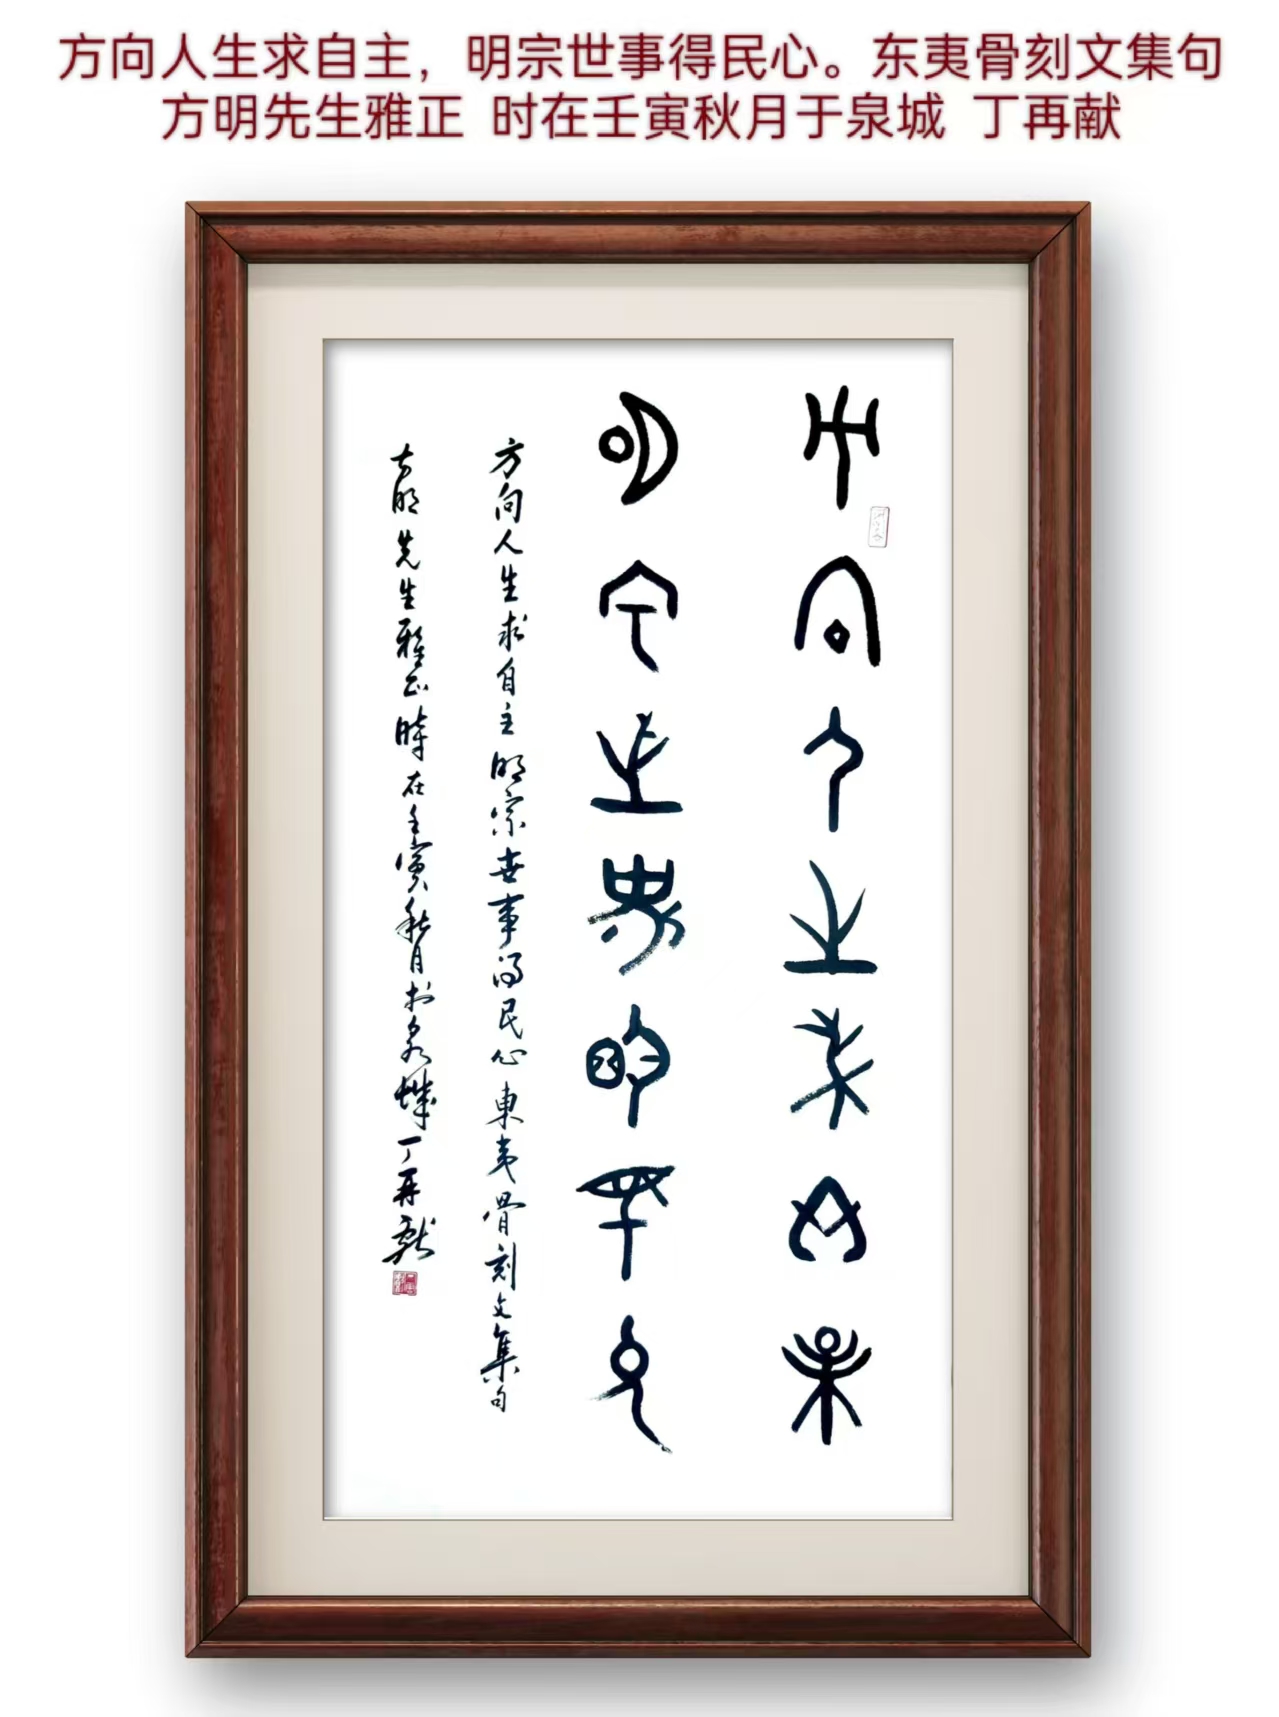 方向人生求自主，明宗世事得民心。东夷骨刻文集句
方明先生雅正 时在壬寅秋月于泉城 丁再献
方向人生求自主
明宗世事得民心
方向人生求自主明宗世事得民心東夷骨刻文集句
方明先生雅正時在壬寅秋月於泉城丁再献